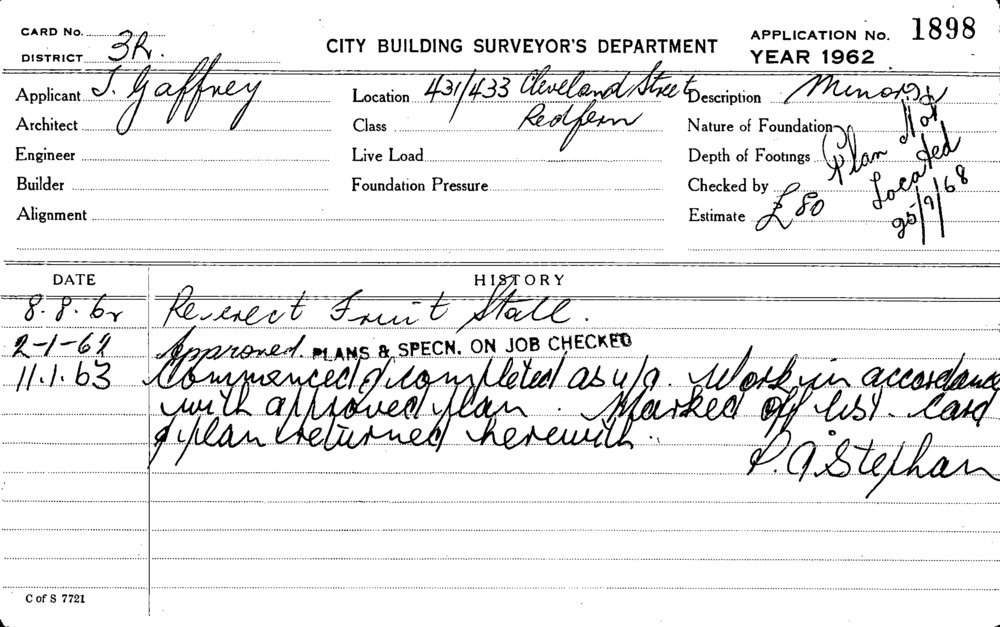 CARD No.
DISTRICT 3R.
CITY BUILDING SURVEYOR'S DEPARTMENT
APPLICATION No. 1898
YEAR 1962
Applicant J. Gaffney
Location 431/433 Cleveland Street
Redfern
Description Minor
Architect
Class
Nature of Foundation
Engineer
Live Load
Depth of Footings
Builder
Foundation Pressure
Checked by
Alignment
Estimate £80
Plan Not
Located
25/9/68
DATE HISTORY
8.8.62 Re-erect Fruit Stall.
2-1-62 Approved. PLANS & SPECN. ON JOB CHECKED
11.1.63 Commenced & completed as u/a. Work in accordance
with approved plan. Marked off list. Card
& plan returned herewith.
Stephan
C of S 7721